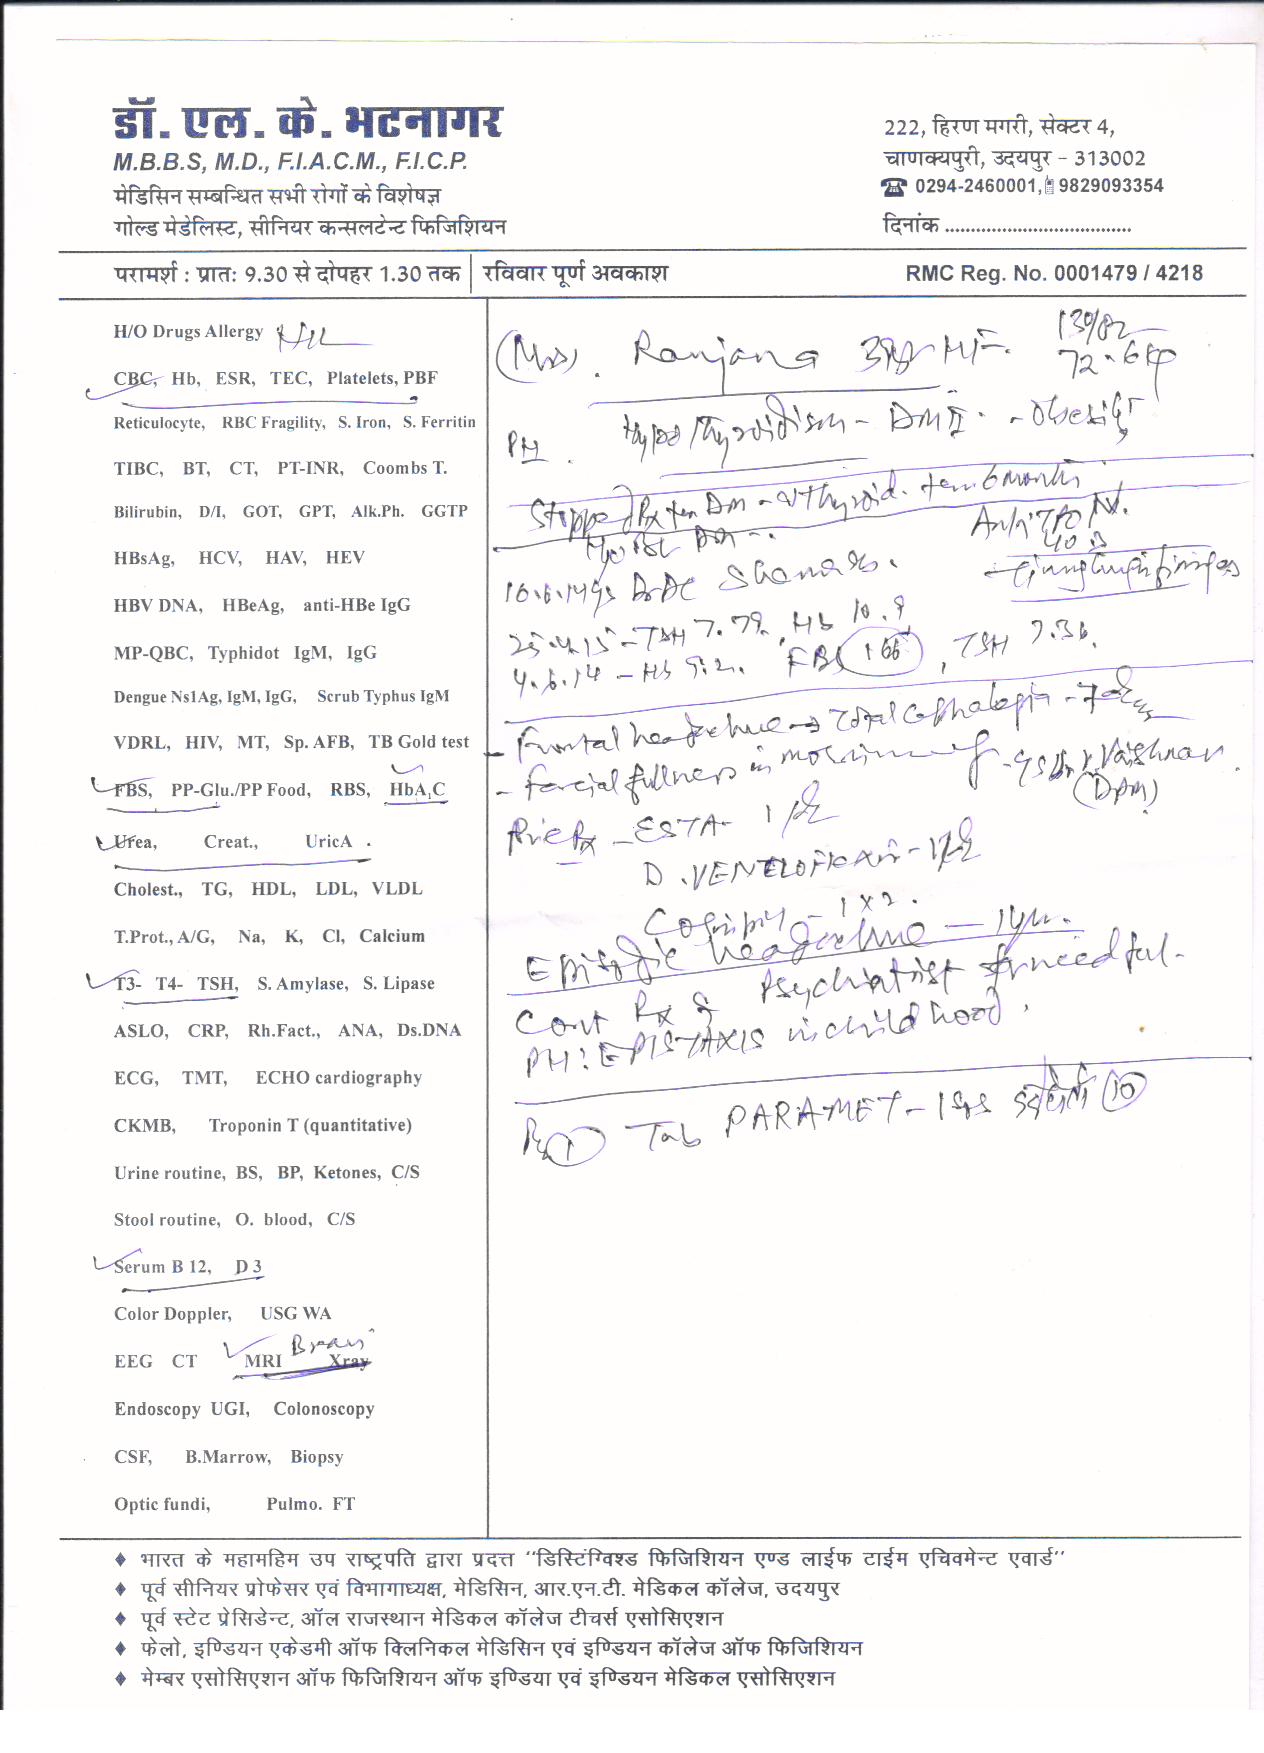 डॉ. एल. के. भटनागर
M.B.B.S, M.D., F.I.A.C.M., F.I.C.P.
मेडिसिन सम्बन्धित सभी रोगों के विशेषज्ञ
गोल्ड मेडेलिस्ट, सीनियर कन्सलटेन्ट फिजिशियन
222, हिरण मगरी, सेक्टर 4,
चाणक्यपुरी, उदयपुर - 313002
0294-2460001, 9829093354
दिनांक ..................................
परामर्श : प्रातः 9.30 से दोपहर 1.30 तक रविवार पूर्ण अवकाश RMC Reg. No. 0001479 / 4218
H/O Drugs Allergy Nil
CBC, Hb, ESR, TEC, Platelets, PBF
Reticulocyte, RBC Fragility, S. Iron, S. Ferritin
TIBC, BT, CT, PT-INR, Coombs T.
Bilirubin, D/I, GOT, GPT, Alk.Ph. GGTP
HBsAg, HCV, HAV, HEV
HBV DNA, HBeAg, anti-HBe IgG
MP-QBC, Typhidot IgM, IgG
Dengue Ns1Ag, IgM, IgG, Scrub Typhus IgM
VDRL, HIV, MT, Sp. AFB, TB Gold test
FBS, PP-Glu./PP Food, RBS, HbA1C
Urea, Creat., UricA .
Cholest., TG, HDL, LDL, VLDL
T.Prot., A/G, Na, K, Cl, Calcium
T3- T4- TSH, S. Amylase, S. Lipase
ASLO, CRP, Rh.Fact., ANA, Ds.DNA
ECG, TMT, ECHO cardiography
CKMB, Troponin T (quantitative)
Urine routine, BS, BP, Ketones, C/S
Stool routine, O. blood, C/S
Serum B 12, D 3
Color Doppler, USG WA
Brain
EEG CT MRI Xray
Endoscopy UGI, Colonoscopy
CSF, B.Marrow, Biopsy
Optic fundi, Pulmo. FT
(Mrs). Ranjana 130/82
72.6 kg
PH. Hypothyroidism - DM II. - Obesity
Stopped Rx for DM - Thyroid. 6 months
10.6.14
25.4.15 - TSH 7.79, Hb 10.9
4.6.14 - Hb 9.2. FBS 166, TSH 7.36.
- Frontal headache → Total Cephalgia - 7
- facial fullness in Vaishnav
(DPM)
Rx - ESTA - 1
D. VENELOFAXIN - 1
- 1 x 2.
Episodic headache - 1 yr.
Cont Rx Psychiatrist for needful-
PH: EPISTAXIS in childhood.
Rx 1 Tab PARAMET - 1 10
♦ भारत के महामहिम उप राष्ट्रपति द्वारा प्रदत्त "डिस्टिंग्विश्ड फिजिशियन एण्ड लाईफ टाईम एचिवमेन्ट एवार्ड"
♦ पूर्व सीनियर प्रोफेसर एवं विभागाध्यक्ष, मेडिसिन, आर.एन.टी. मेडिकल कॉलेज, उदयपुर
♦ पूर्व स्टेट प्रेसिडेन्ट, ऑल राजस्थान मेडिकल कॉलेज टीचर्स एसोसिएशन
♦ फेलो, इण्डियन एकेडमी ऑफ क्लिनिकल मेडिसिन एवं इण्डियन कॉलेज ऑफ फिजिशियन
♦ मेम्बर एसोसिएशन ऑफ फिजिशियन ऑफ इण्डिया एवं इण्डियन मेडिकल एसोसिएशन